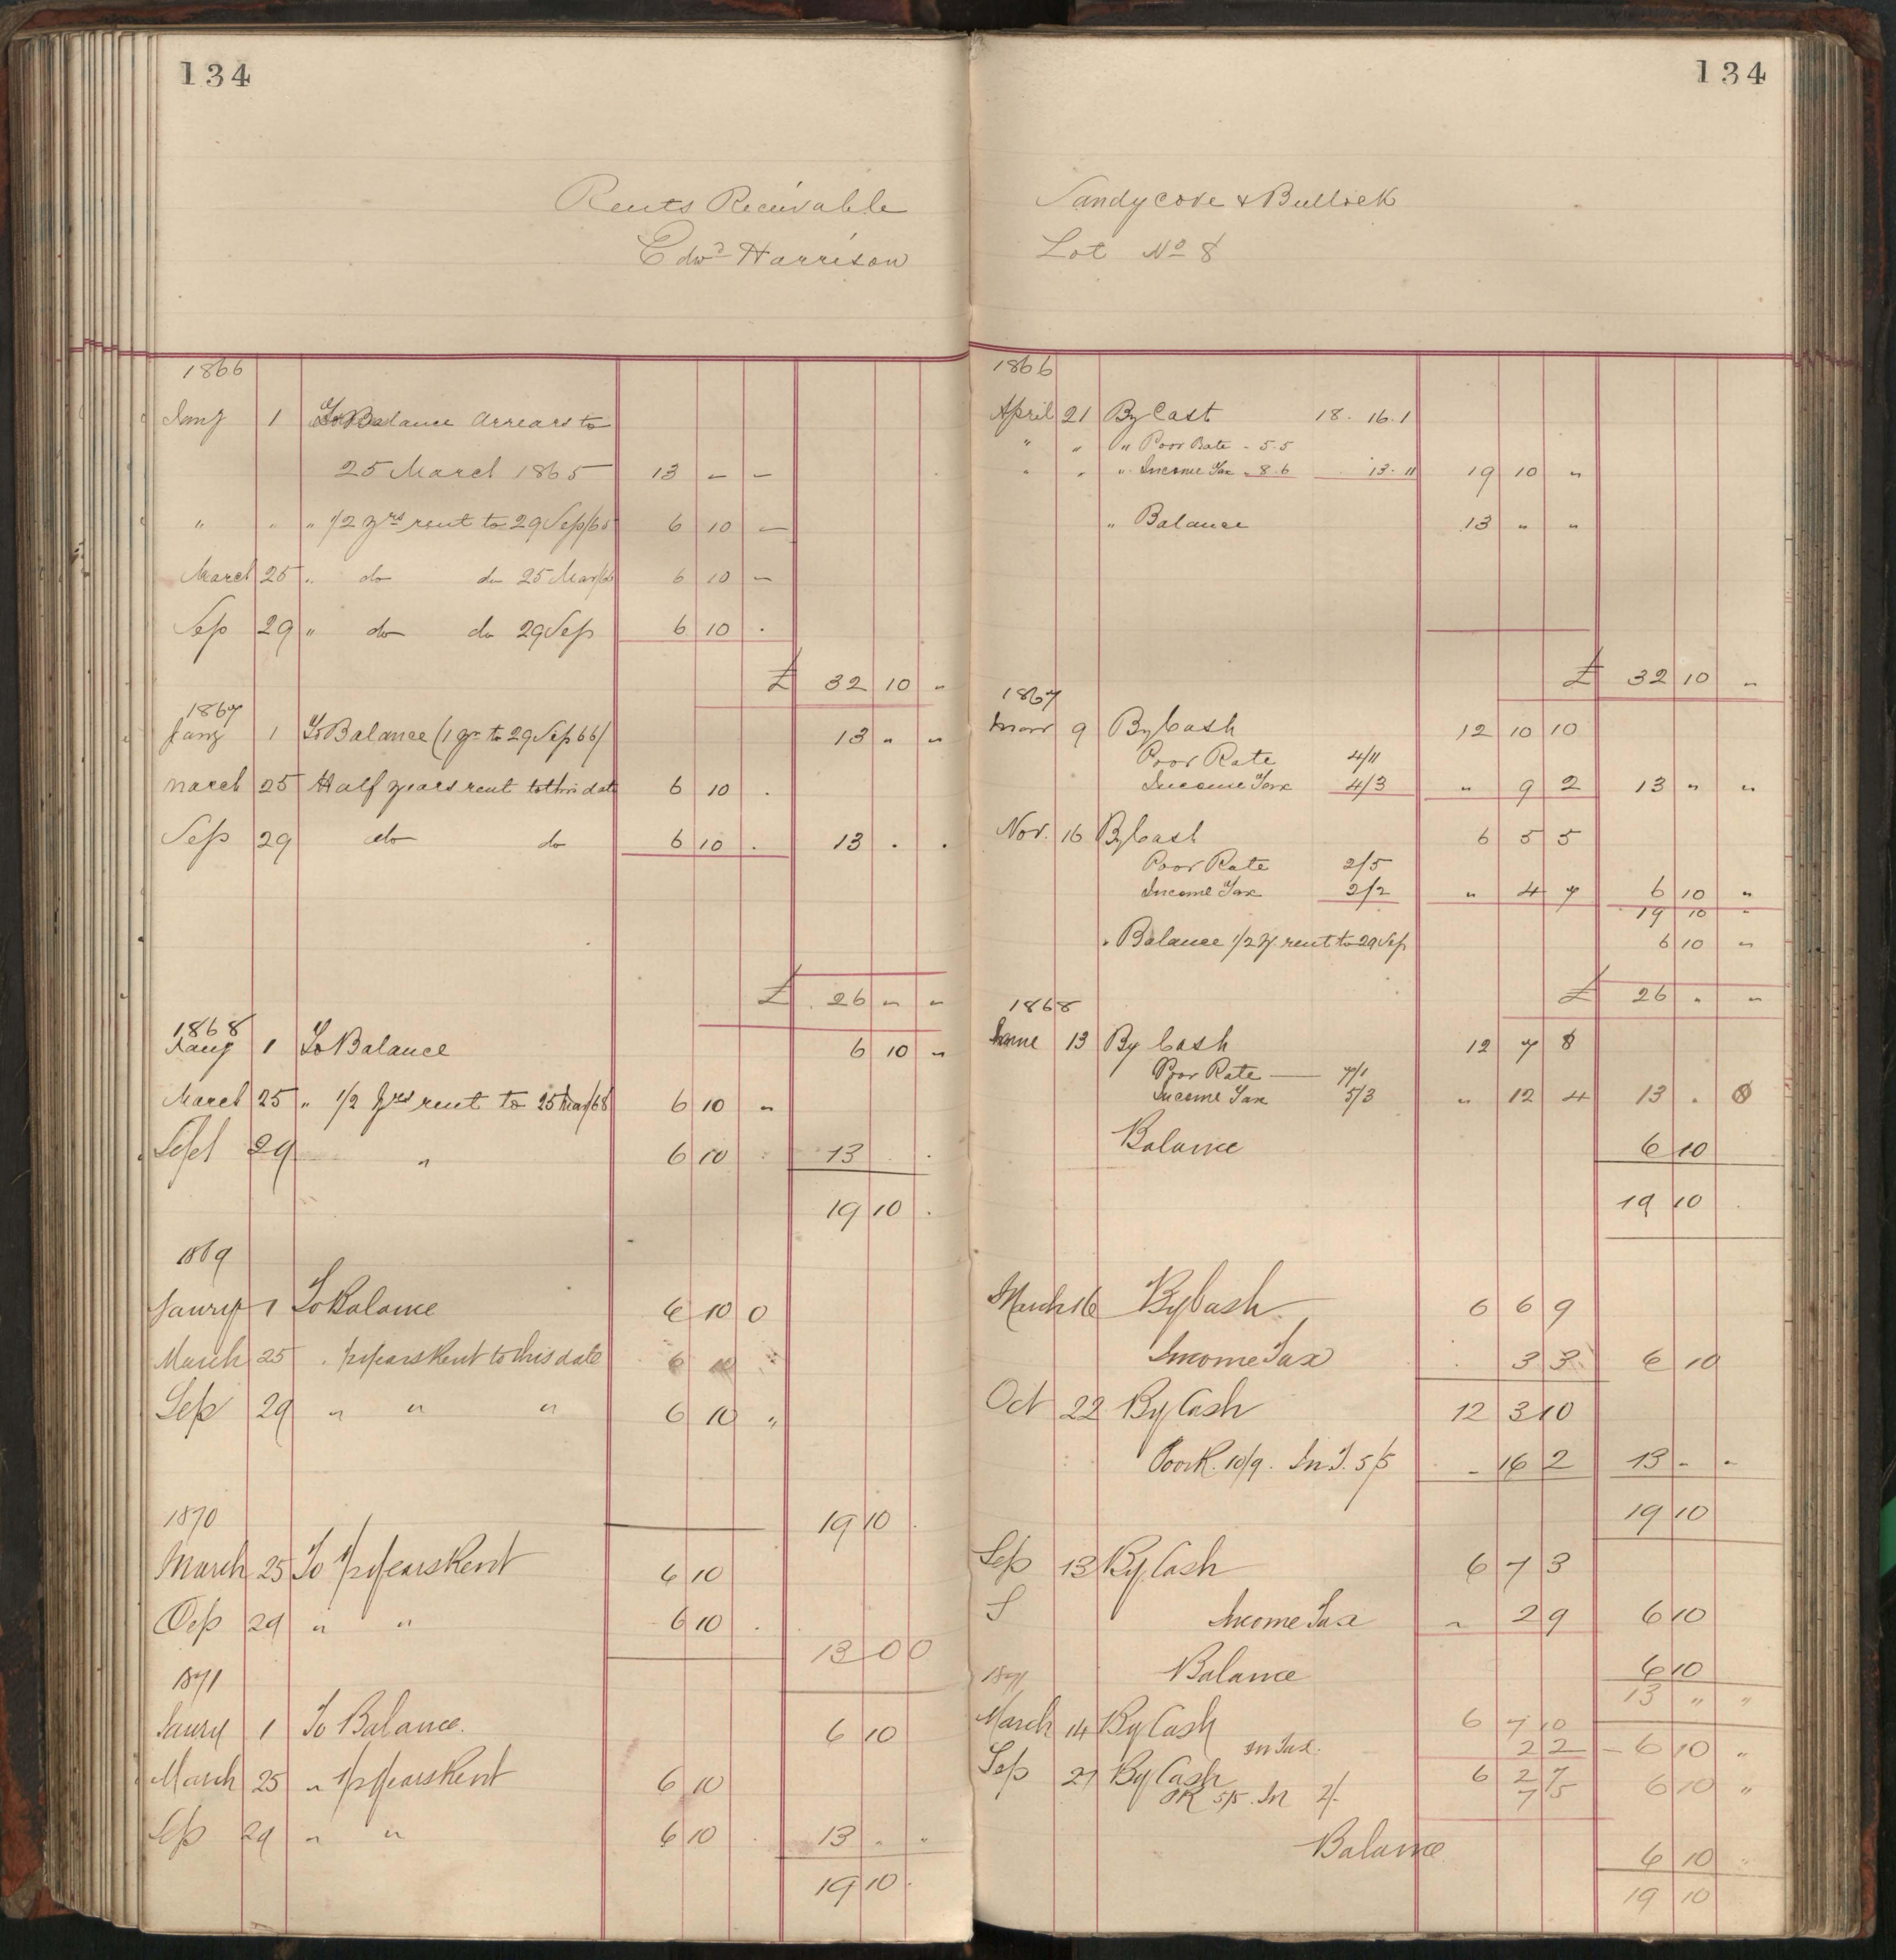 134
Rents Receivable
Edwd Harrison
1866
Jany 1 To Balance Arrears to
25 March 1865 13 - -
" " " 1/2 yrs rent to 29 Sep/65 6 10 -
March 25 " do do 25 Mar/66 6 10 -
Sep 29 " do do 29 Sep 6 10 .
£ 32 10 "
1867
Jany 1 To Balance (1 yr to 29 Sep 66) 13 " "
March 25 Half years rent to this date 6 10 .
Sep 29 do do 6 10 . 13 . .
£ 26 " "
1868
Jany 1 To Balance 6 10 "
March 25 " 1/2 yrs rent to 25 Mar/68 6 10 "
Sept 29 " 6 10 . 13 . .
19 10 .
1869
Janry 1 To Balance 6 10 0
March 25 " 1/2 years Rent to this date 6 10 "
Sep 29 " " " 6 10 "
19 10 .
1870
March 25 To 1/2 years Rent 6 10
Sep 29 " " 6 10 .
13 0 0
1871
Janry 1 To Balance. 6 10
March 25 " 1/2 years Rent 6 10
Sep 29 " " 6 10 . 13 . "
19 10 .
134
Sandycove & Bullock
Lot No 8
1866
April 21 By Cash 18. 16. 1
" " " Poor Rate - 5.5
" " " Income Tax - 8.6 13. 11 19 10 "
" Balance 13 " "
£ 32 10 "
1867
Mar 9 By Cash 12 10 10
Poor Rate 4/11
Income Tax 4/3 " 9 2 13 " "
Nov. 16 By Cash 6 5 5
Poor Rate 2/5
Income Tax 2/2 " 4 7 6 10 "
19 10 "
" Balance 1/2 y. rent to 29 Sep 6 10 "
£ 26 . "
1868
June 13 By Cash 12 7 8
Poor Rate — 7/1
Income Tax 5/3 " 12 4 13 . 0
Balance 6 10
19 10 .
March 16 By Cash 6 6 9
Income Tax . 3 3 6 10
Oct 22 By Cash 12 3 10
Poor R. 10/9. In T. 5/5 - 16 2 13 - -
19 10
Sep 13 By Cash 6 7 3
S Income Tax " 2 9 6 10
Balance 6 10
13 " "
1871
March 14 By Cash 6 7 10
In Tax. 2 2 - 6 10 "
Sep 27 By Cash 6 2 7
PR 5/5. In 2/- 7 5 6 10 "
Balance 6 10 "
19 10